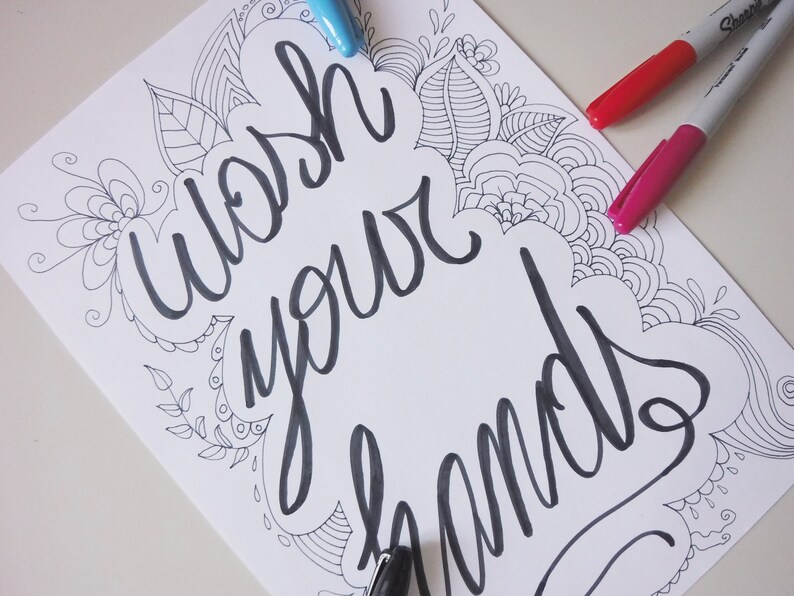 wash
your
hands
Sharpie